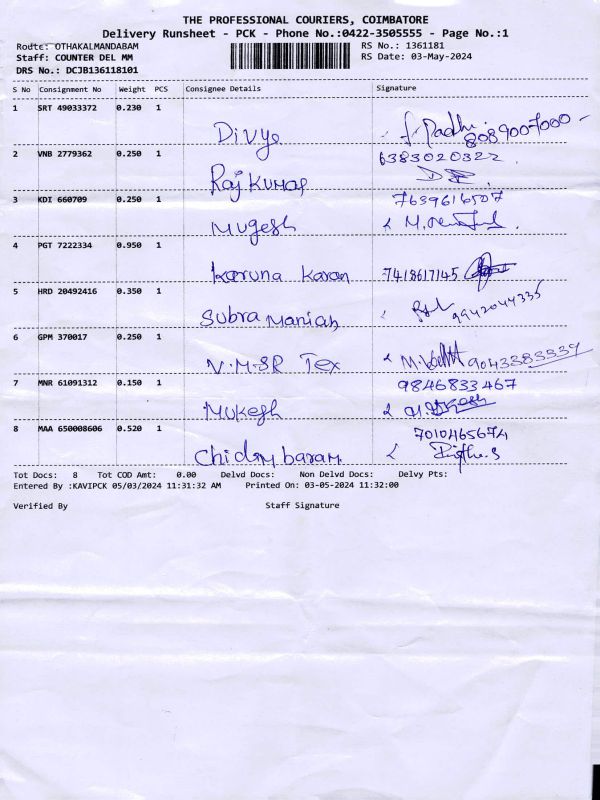 THE PROFESSIONAL COURIERS, COIMBATORE
Delivery Runsheet - PCK - Phone No.:0422-3505555 - Page No.:1
Route: OTHAKALMANDABAM RS No.: 1361181
Staff: COUNTER DEL MM RS Date: 03-May-2024
DRS No.: DCJB136118101
S No Consignment No Weight PCS Consignee Details Signature
1 SRT 49033372 0.230 1
Divya 8089007000
2 VNB 2779362 0.250 1 6383020322
Raj Kumar
3 KDI 660709 0.250 1 7639616507
Mugesh
4 PGT 7222334 0.950 1
Karuna Karan 7418617145
5 HRD 20492416 0.350 1
Subra Maniah 9942044335
6 GPM 370017 0.250 1
V.M.SR Tex
7 MNR 61091312 0.150 1 9846833467
Mukesh
8 MAA 650008606 0.520 1 7010465674
Chidambaram
Tot Docs: 8 Tot COD Amt: 0.00 Delvd Docs: Non Delvd Docs: Delvy Pts:
Entered By :KAVIPCK 05/03/2024 11:31:32 AM Printed On: 03-05-2024 11:32:00
Verified By Staff Signature